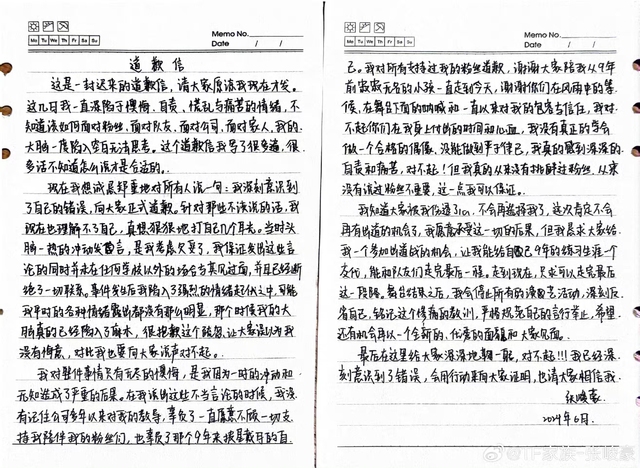 Memo No.
Mo Tu We Th Fr Sa Su
Date / /
道歉信
这是一封迟来的道歉信，请大家原谅我现在才发。
这几日我一直深陷于懊悔、自责、慌乱与痛苦的情绪，不
知道该如何面对粉丝，面对队友，面对公司，面对家人，我的
大脑一度陷入空白无法思考。这个道歉信我写了很多遍，很
多话不知道怎么说才是合适的。
现在我想诚恳郑重地对所有人说一句：我深刻意识到
了自己的错误，向大家正式道歉。针对那些不该说的话，我
现在也理解不了自己，真想狠狠地打自己几个耳光。当时头
脑一热的冲动发言，是我考虑欠妥了，我保证发出这些言
论的同时并未在任何耳枝以外的场合与其见过面，并且已经断
绝了一切联系。事件发生后我陷入了强烈的情绪起伏之中，可能
我平时的各种情绪露出都没有那么明显，那个时候我的大
脑真的已经陷入了麻木，但抱歉这个疏忽让大家误以为我
没有悔意，对此我也要向大家说声对不起。
我对整件事情只有无尽的懊悔，是我因为一时的冲动和
无知造成了严重的后果。在我说出这些不当言论的时候，我没
有记住公司多年以来对我的教导，辜负了一直愿意不顾一切支
持我陪伴我的粉丝们，也辜负了那个9年来披星戴月的自
Memo No.
Mo Tu We Th Fr Sa Su
Date / /
己。我对所有支持过我的粉丝道歉，谢谢大家陪我从9年
前寂寂无名的小孩一直走到今天，谢谢你们在风雨中的等
候，在舞台下面的呐喊和一直以来对我的包容与信任，我对
不起你们在我身上付出的时间和心血，我没有真正的学会
做一个合格的偶像，没能做到严于律己，我真的感到深深的
自责和痛苦，对不起！但我真的从来没有排解过粉丝，从来
没有说过粉丝不重要，这一点我可以保证。
我知道大家被我伤透了心，不会再选择我了，这次肯定不会
再有出道的机会了，我愿意承受这一切的后果，但我恳求大家给
我一个参加出道战的机会，让我能给自己9年的练习生涯一个
交代，能和队友们走完最后一程。走到现在，只求可以走完最后
这一段路。舞台结束之后，我会停止所有的演艺活动，深刻反
省自己，铭记这个惨痛的教训，严格规范自己的言行举止，希望
还有机会再以一个全新的、优秀的面貌和大家见面。
最后在这里给大家深深地鞠一躬，对不起！！！我已经深
刻意识到了错误，会用行动来向大家证明，也请大家相信我。
张峻豪
2024年6月
@TF家族-张峻豪